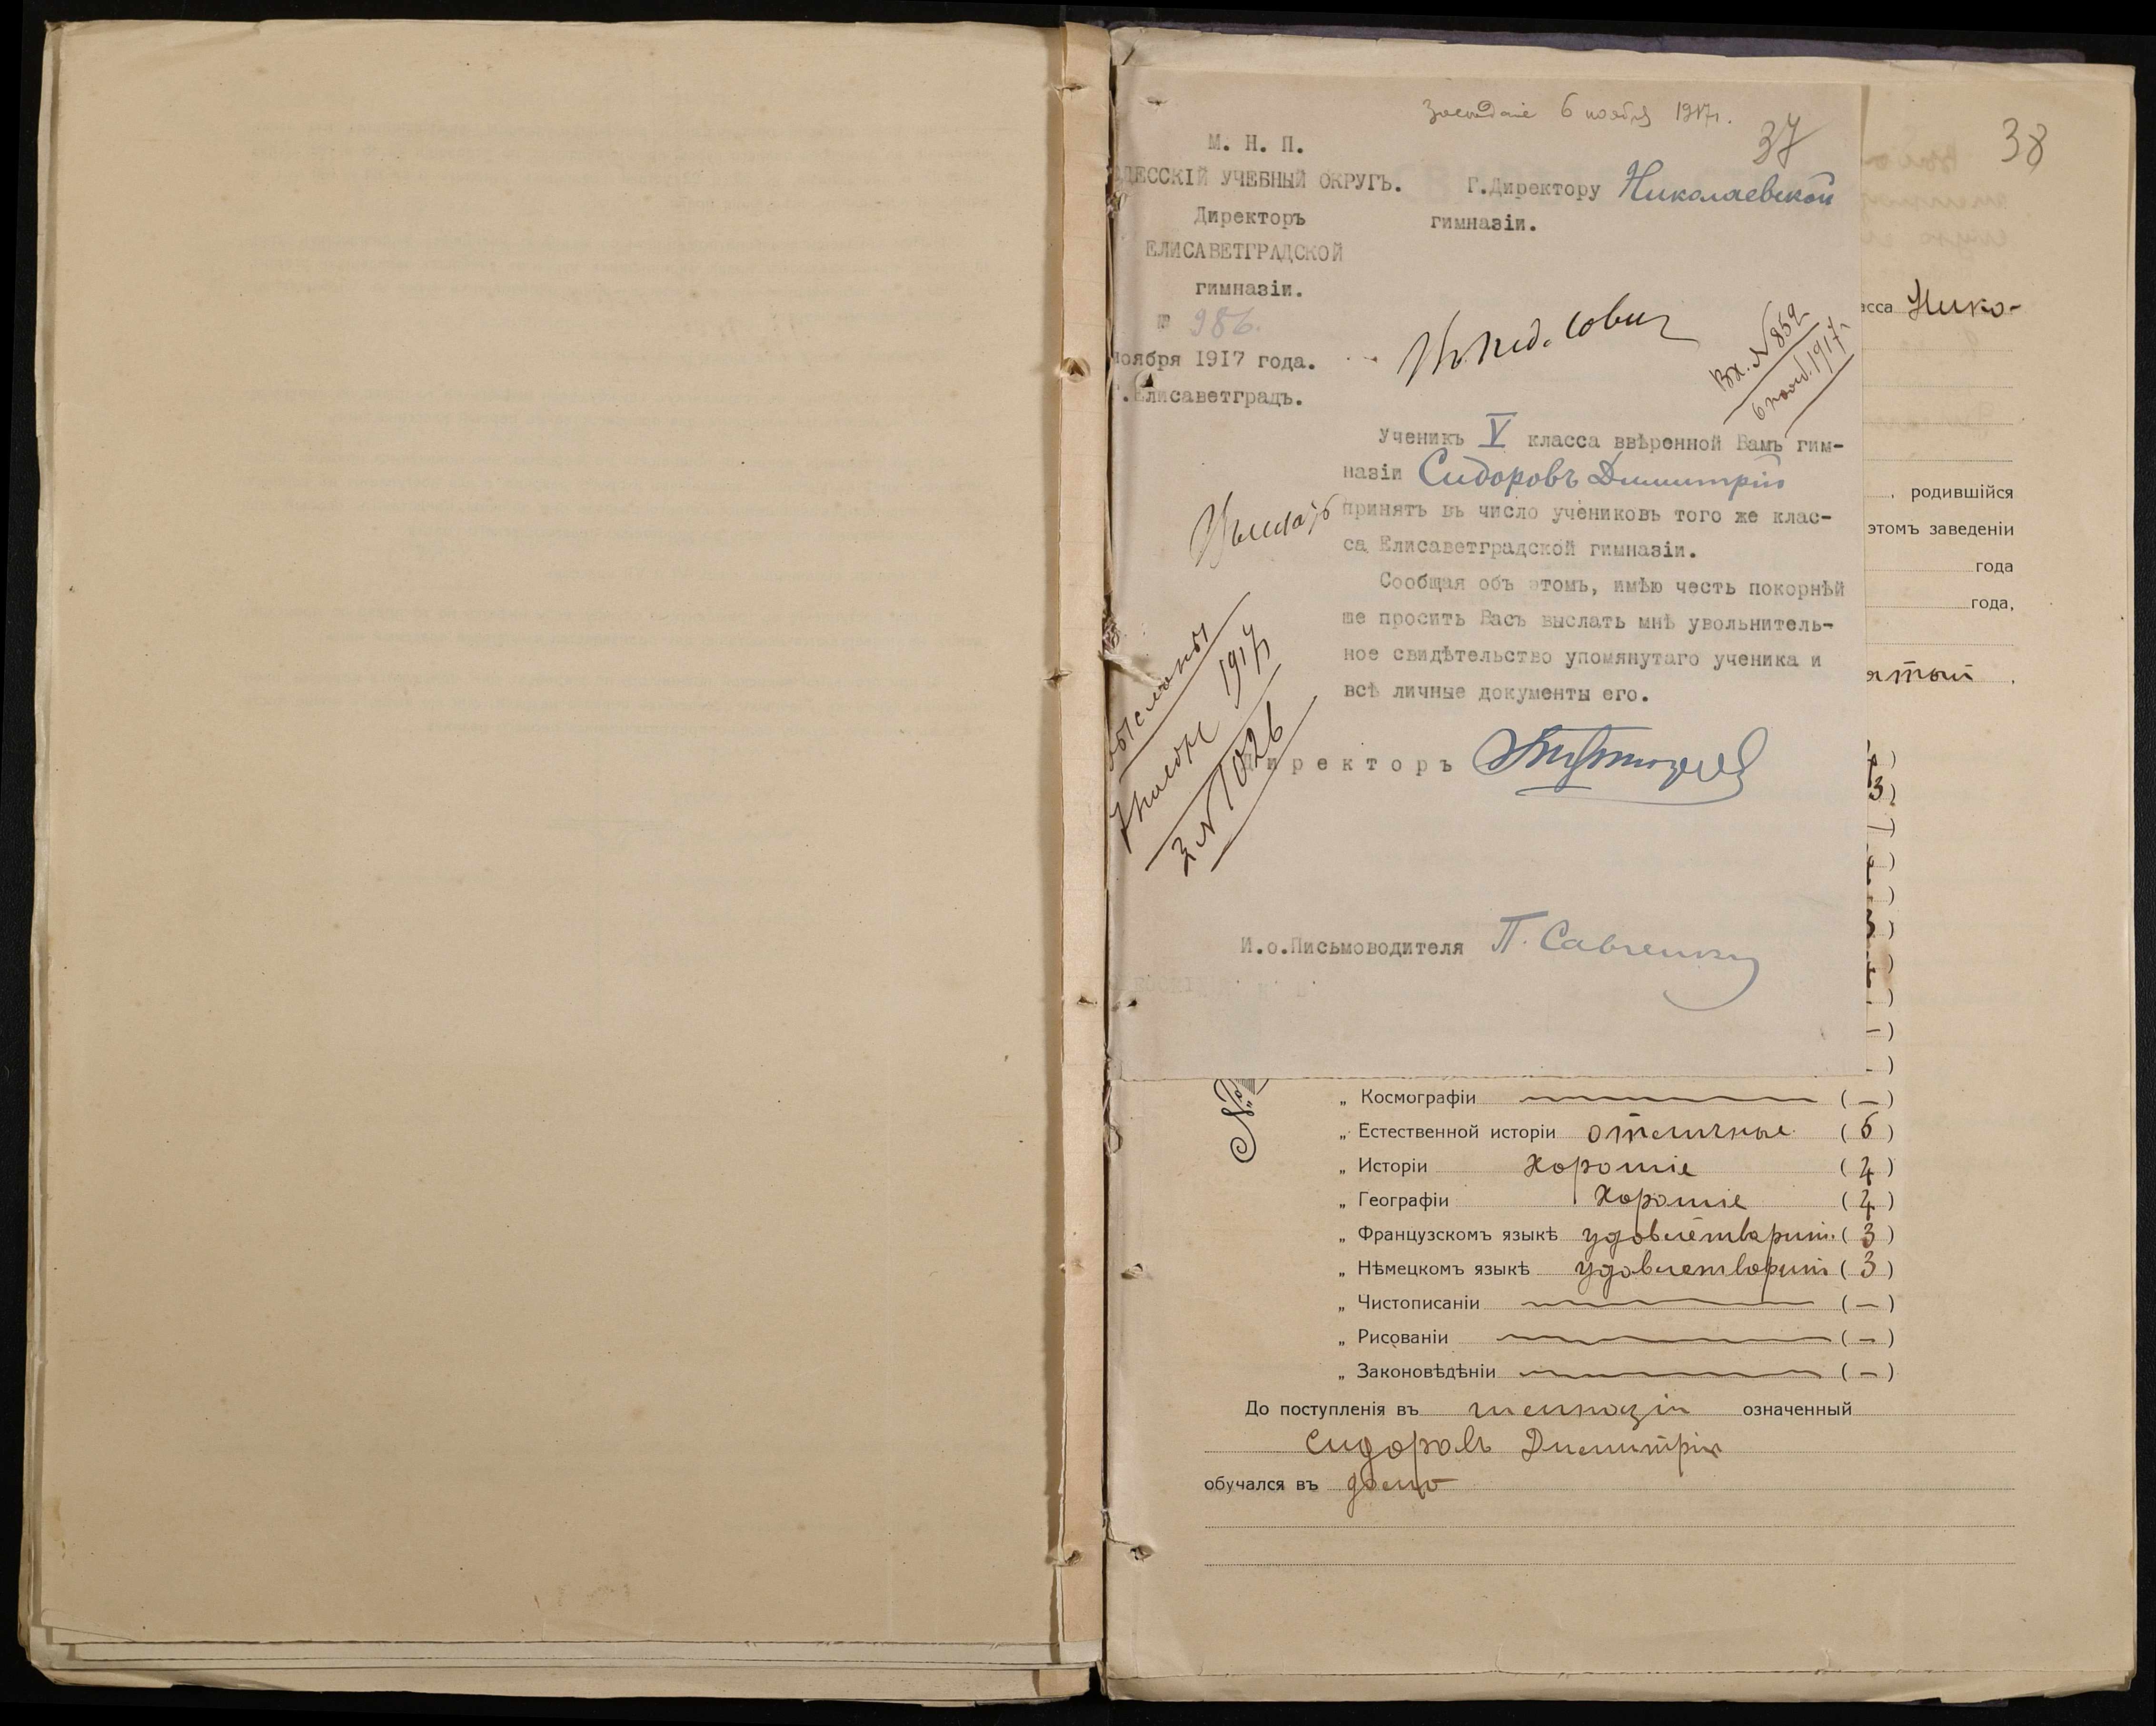 Заседаніе 6 ноября 1917г.
37
М. Н. П.
ДЕССКІЙ УЧЕБНЫЙ ОКРУГЪ.
Директоръ
ЕЛИСАВЕТГРАДСКОЙ
гимназіи.
№ 986.
ноября 1917 года.
г.Елисаветградъ.
Г.Директору Николаевской
гимназіи.
Въ пед. совѣт
Вх. №859
6 нояб. 1917г.
Ученикъ V класса ввѣренной Вамъ гим-
назіи Сидоровъ Димитрій
принятъ въ число учениковъ того же клас-
са Елисаветградской гимназіи.
Сообщая объ этомъ, имѣю честь покорнѣй
ше просить Васъ выслать мнѣ увольнитель-
ное свидѣтельство упомянутаго ученика и
всѣ личные документы его.
1917г
№ 1026
Директоръ
И.о.Письмоводителя П. Савченко
38
асса Нико-
, родившійся
этомъ заведеніи
года
года,
ятый .
№
„ Космографіи (—)
„ Естественной исторіи отличные (5)
„ Исторіи хорошіе (4)
„ Географіи хорошіе (4)
„ Французскомъ языкѣ удовлетворит. (3)
„ Нѣмецкомъ языкѣ удовлетворит (3)
„ Чистописаніи (—)
„ Рисованіи (—)
„ Законовѣдѣніи (—)
До поступленія въ гимназію означенный
Сидоровъ Димитрій
обучался въ дома